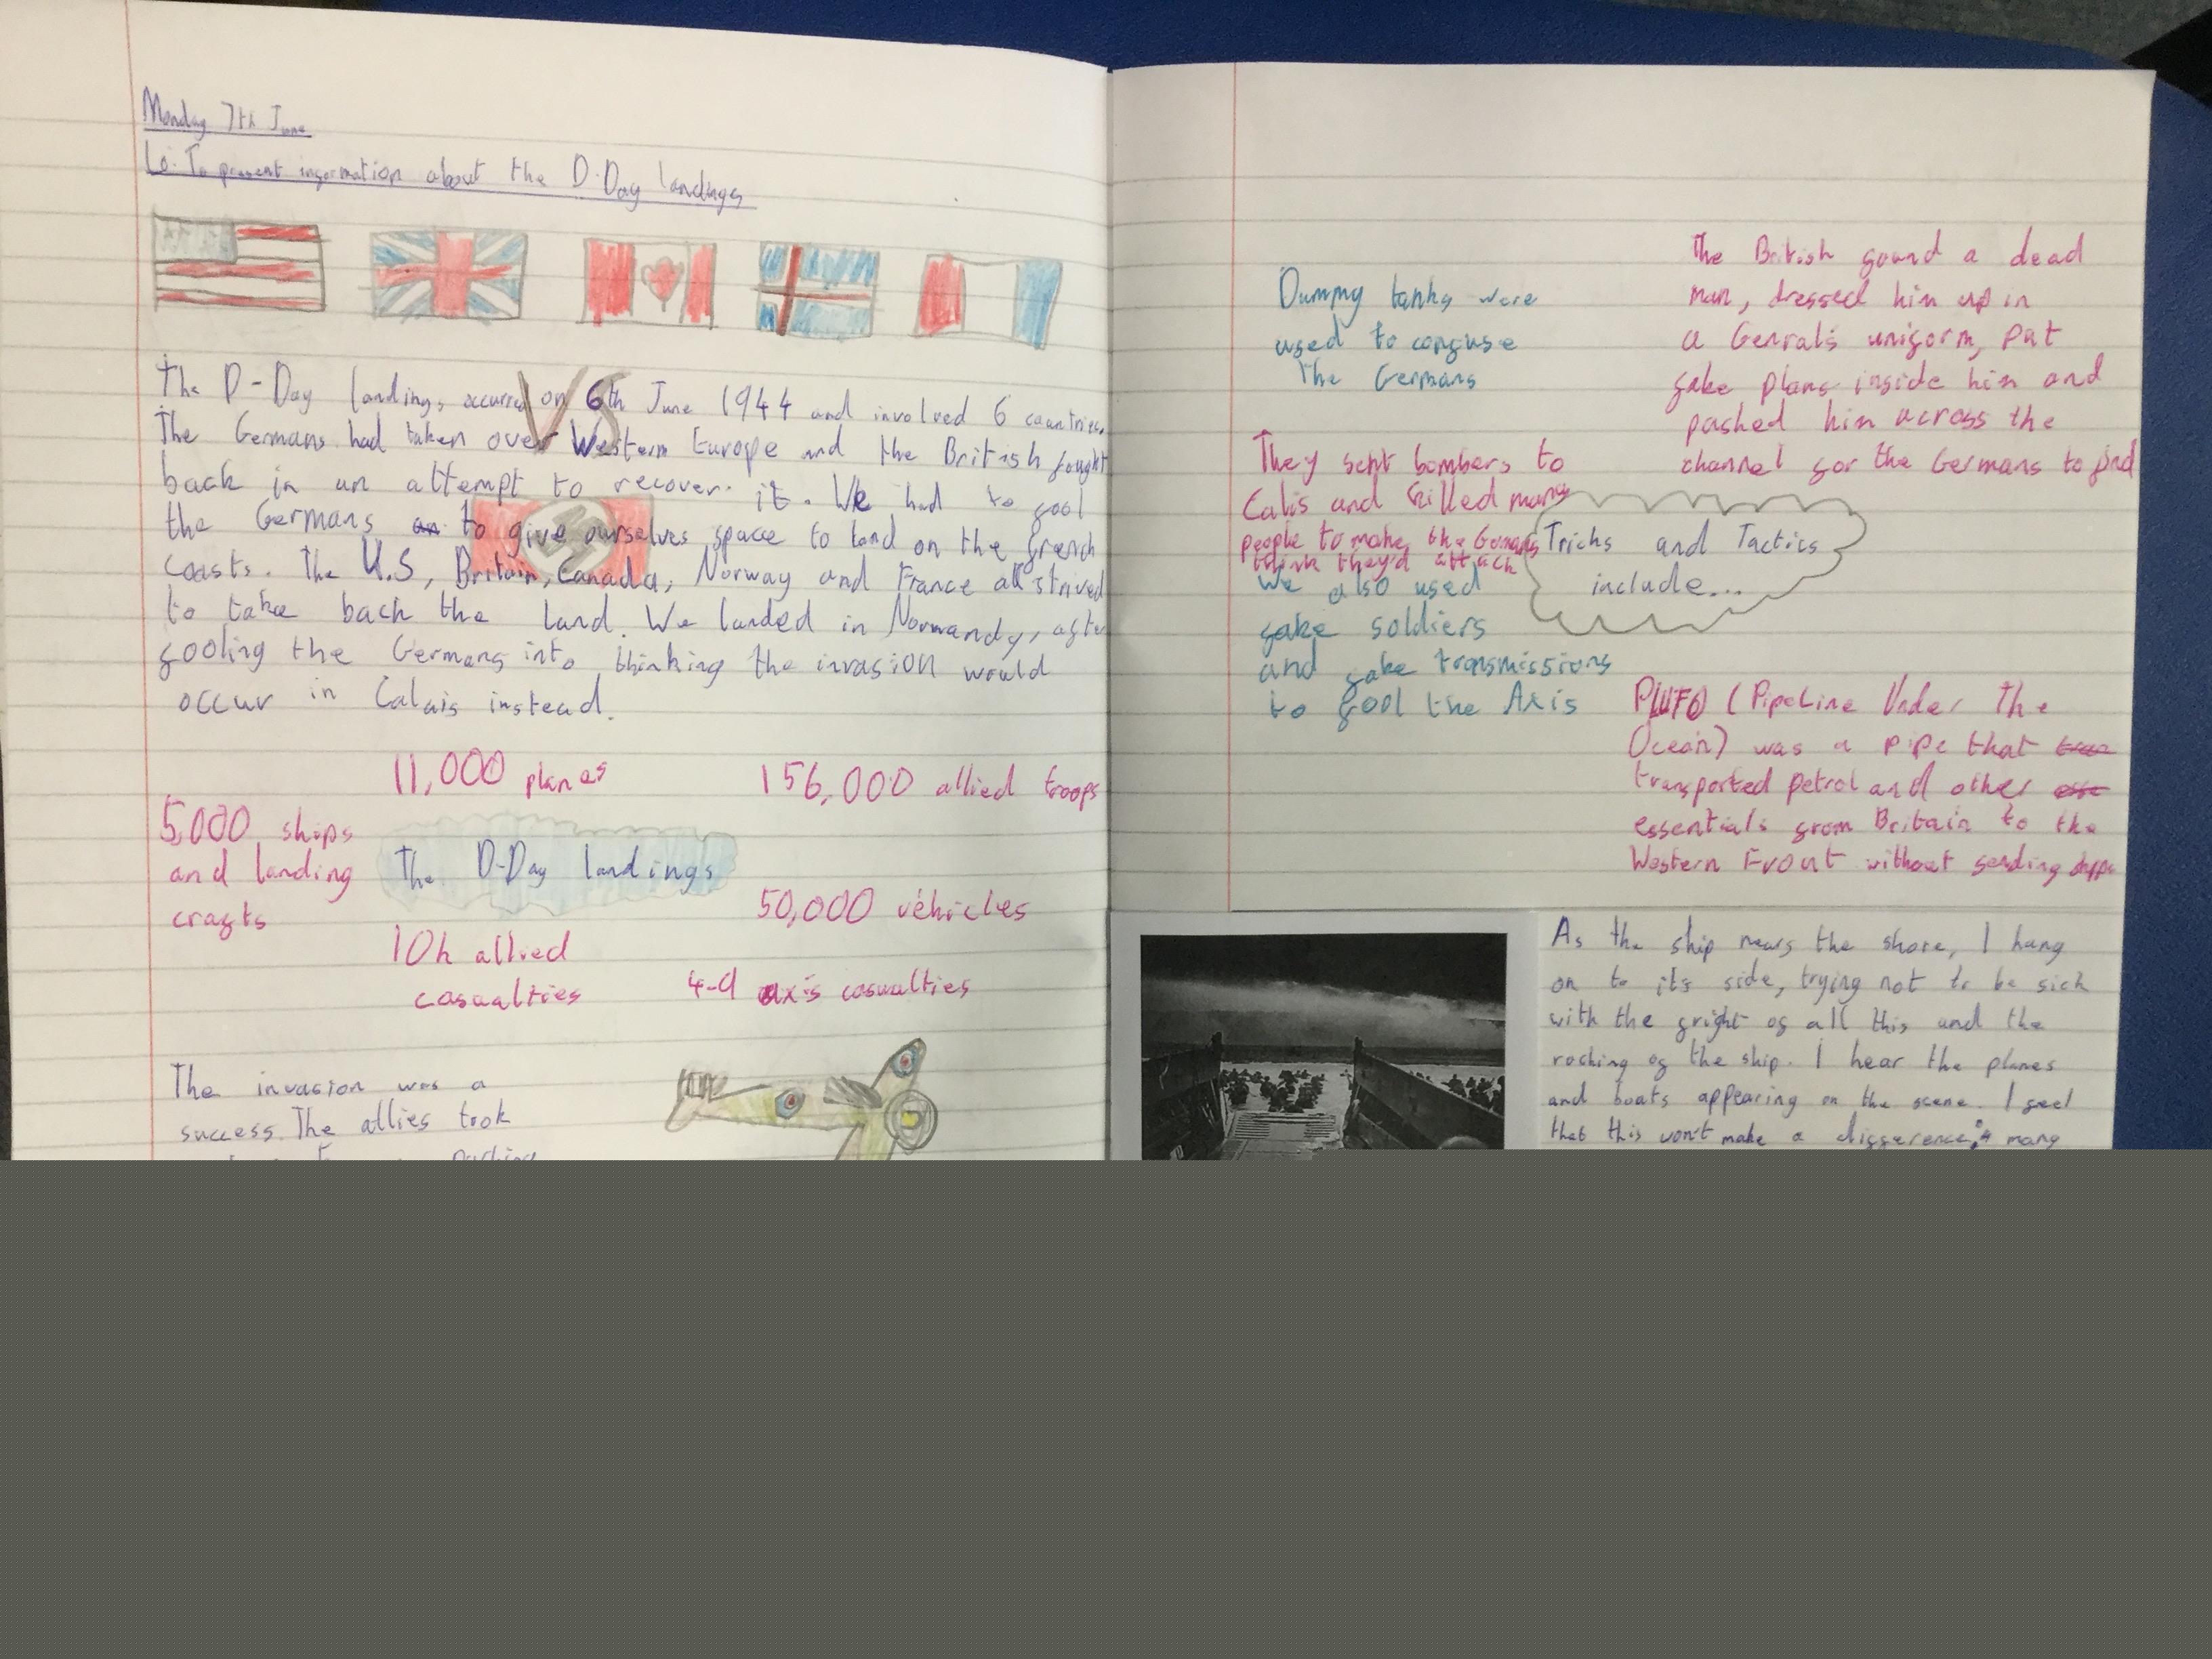 Monday 7th June
Lo: To present information about the D-Day landings
VS
The D-Day landings occurred on 6th June 1944 and involved 6 countries.
The Germans had taken over Western Europe and the British fought
back in an attempt to recover it. We had to fool
the Germans an to give ourselves space to land on the french
coasts. The U.S, Britain, Canada, Norway and France all strived
to take back the land. We landed in Normandy, after
fooling the Germans into thinking the invasion would
occur in Calais instead.
11,000 planes
156,000 allied troops
5,000 ships
and landing
crafts
The D-Day landings
50,000 vehicles
10k allied
casualties
4-9 axis casualties
The invasion was a
success. The allies took
Dummy tanks were
used to confuse
The Germans
The British found a dead
man, dressed him up in
a Genral's uniform, put
fake plans inside him and
pushed him across the
channel for the Germans to find
They sent bombers to
Calis and killed many
people to make the Germans
think they'd attack
Tricks and Tactics
include...
We also used
fake soldiers
and fake transmissions
to fool the Axis
PLUTO (PipeLine Under The
Ocean) was a pipe that
transported petrol and other
essentials from Britain to the
Western Front without sending
As the ship nears the shore, I hang
on to it's side, trying not to be sick
with the fright of all this and the
rocking of the ship. I hear the planes
and boats appearing on the scene. I feel
that this won't make a difference; many